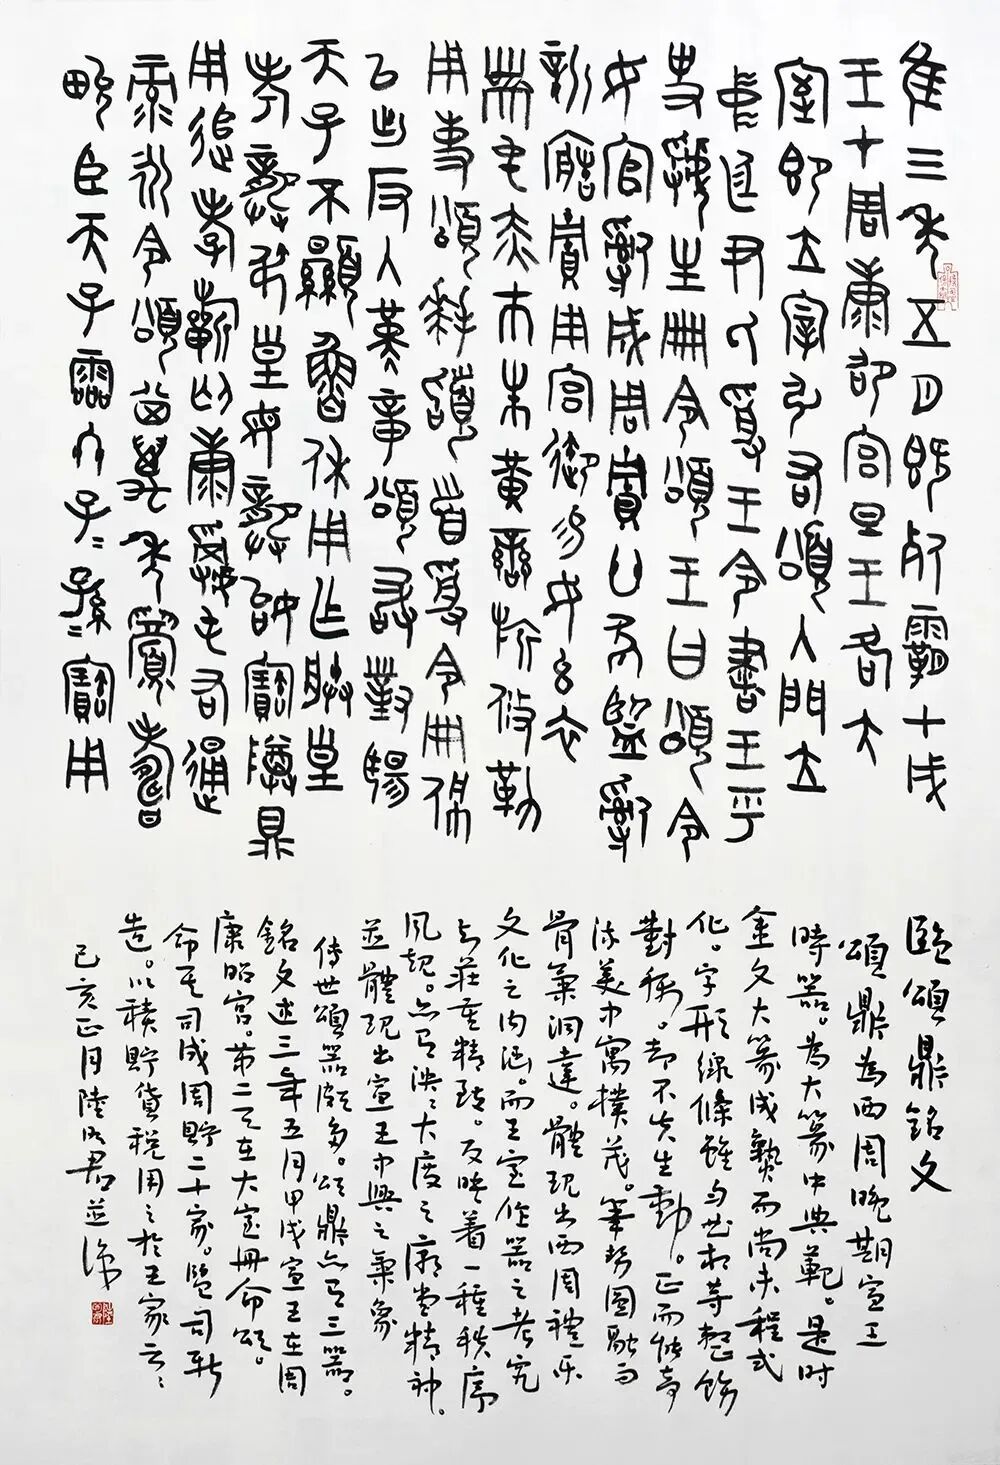 隹三年五月既死霸十戌
王十周康卲宮旦王各大
室即立宰引右頌入門立
中廷尹氏受王令書王乎
史虢生冊令頌王曰頌令
女官𤔲成周貯廿家監𤔲
新造貯用宮御易女玄衣
黹屯赤巿朱黃鑾旂攸勒
用事頌拜𩒨首受令冊佩
以出反入堇章頌敢對揚
天子不顯魯休用乍朕皇
考龏弔皇母龏始寶尊鼎
用追孝祈匄康𩛥屯右通
彔永令頌其萬年眉壽
畯臣天子霝冬子=孫=寶用
臨頌鼎銘文
頌鼎為西周晚期宣王
時器。為大篆中典範。是时
金文大篆成熟而尚未程式
化。字形線條雖匀相等整飭
對稱。却不失生動。正而能奇
流美中寓樸茂。筆势圓融而
骨氣洞達。體現出西周禮乐
文化之内涵。而王室作器之考究
与莊重精致。反映着一種秩序
风规。亦有泱泱大度之廟堂精神。
並體現出宣王中興之氣象
傳世頌器颇多。頌鼎亦有三器。
銘文述三年五月甲戌宣王在周
康昭宮。第二天在大室冊命頌。
命其司成周貯二十家。監司新
造。以積貯貨税用之於王家云云
己亥正月陸明君並識